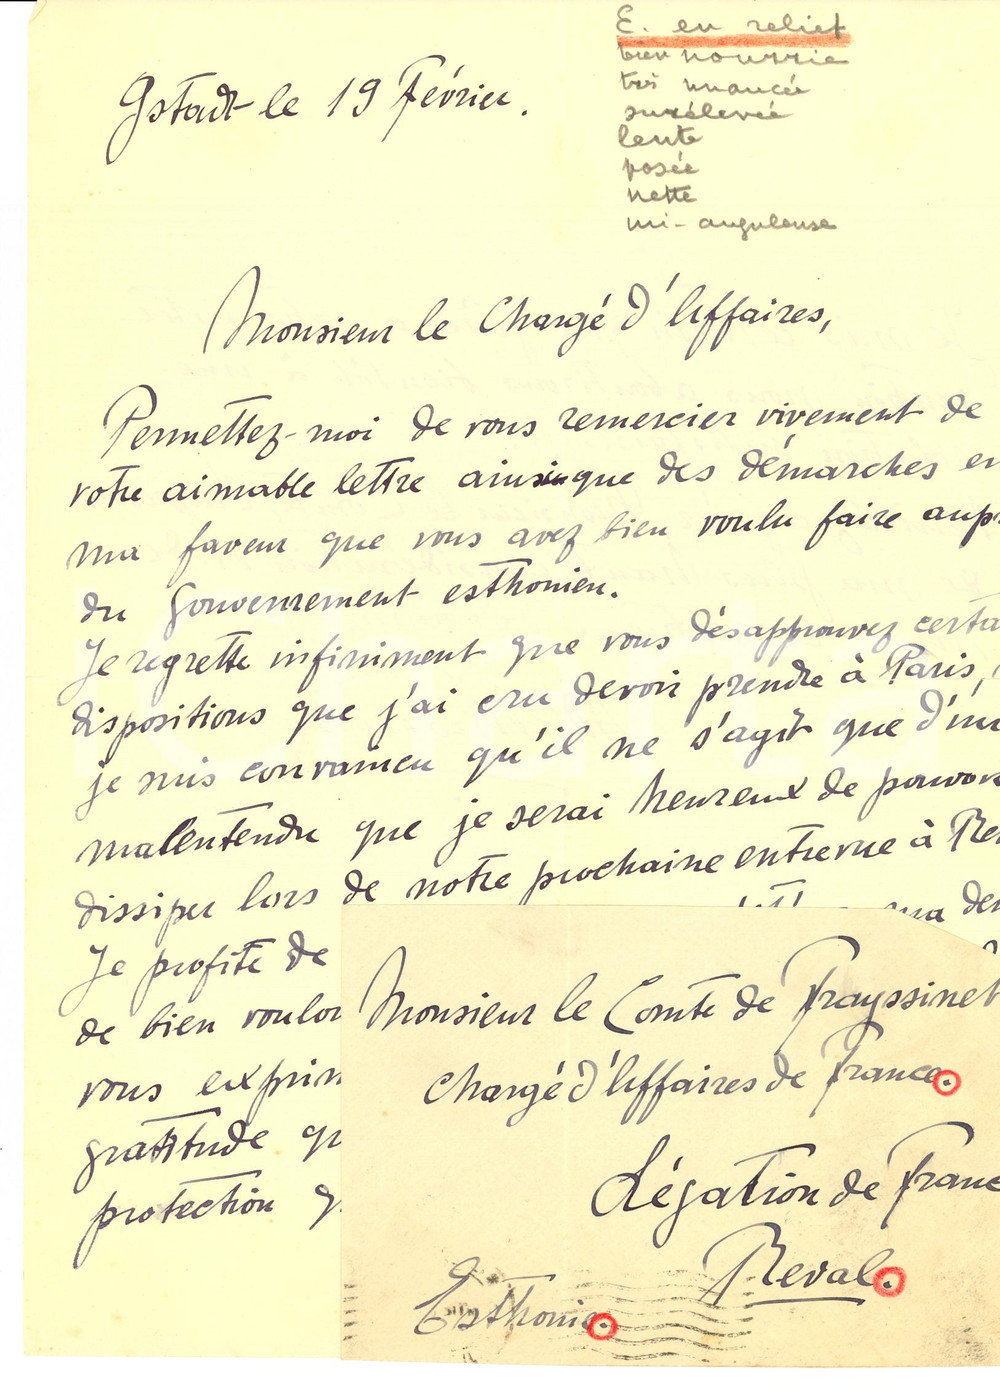 E. en relief
bien nourrie
très nuancée
surélevée
lente
posée
nette
mi-anguleuse
Gstadt-le 19 Février.
Monsieur le Chargé d'Affaires,
Permettez-moi de vous remercier vivement de
votre aimable lettre ainsi que des démarches en
ma faveur que vous avez bien voulu faire aupr
du Gouvernement esthonien.
Je regrette infiniment que vous désapprouvez certa
dispositions que j'ai cru devoir prendre à Paris,
je suis convaincu qu'il ne s'agit que d'un
malentendu que je serai heureux de pouvoir
dissiper lors de notre prochaine entrevue à Re
Je profite de ma der
de bien voulo
vous exprim
gratitude qu
protection q
Monsieur le Comte de Frayssinet
Chargé d'Affaires de France.
Légation de Franc
Reval.
Esthonie.